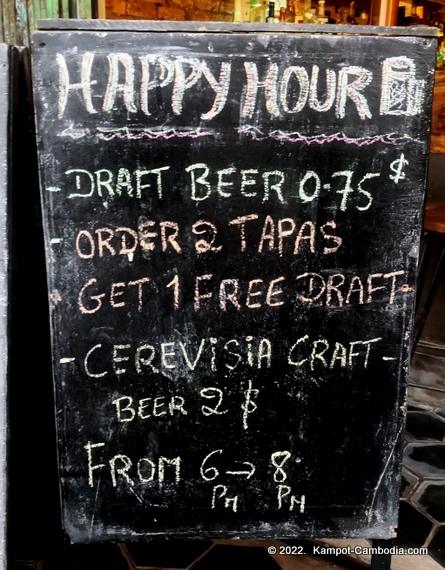 HAPPY HOUR
- DRAFT BEER 0.75 $
- ORDER 2 TAPAS
- GET 1 FREE DRAFT -
- CEREVISIA CRAFT -
BEER 2 $
FROM 6 → 8
PM PM
© 2022. Kampot-Cambodia.com